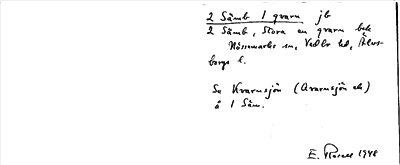 2 Sämb 1 qvarn jb
2 Sämb, Stora en qvarn bek
Nössemarks sn, Vedbo hd, Älvs-
borgs l.
Se Kvarnsjön (Qvarnsjön ek)
å 1 Säm.
E. Rosell 1948